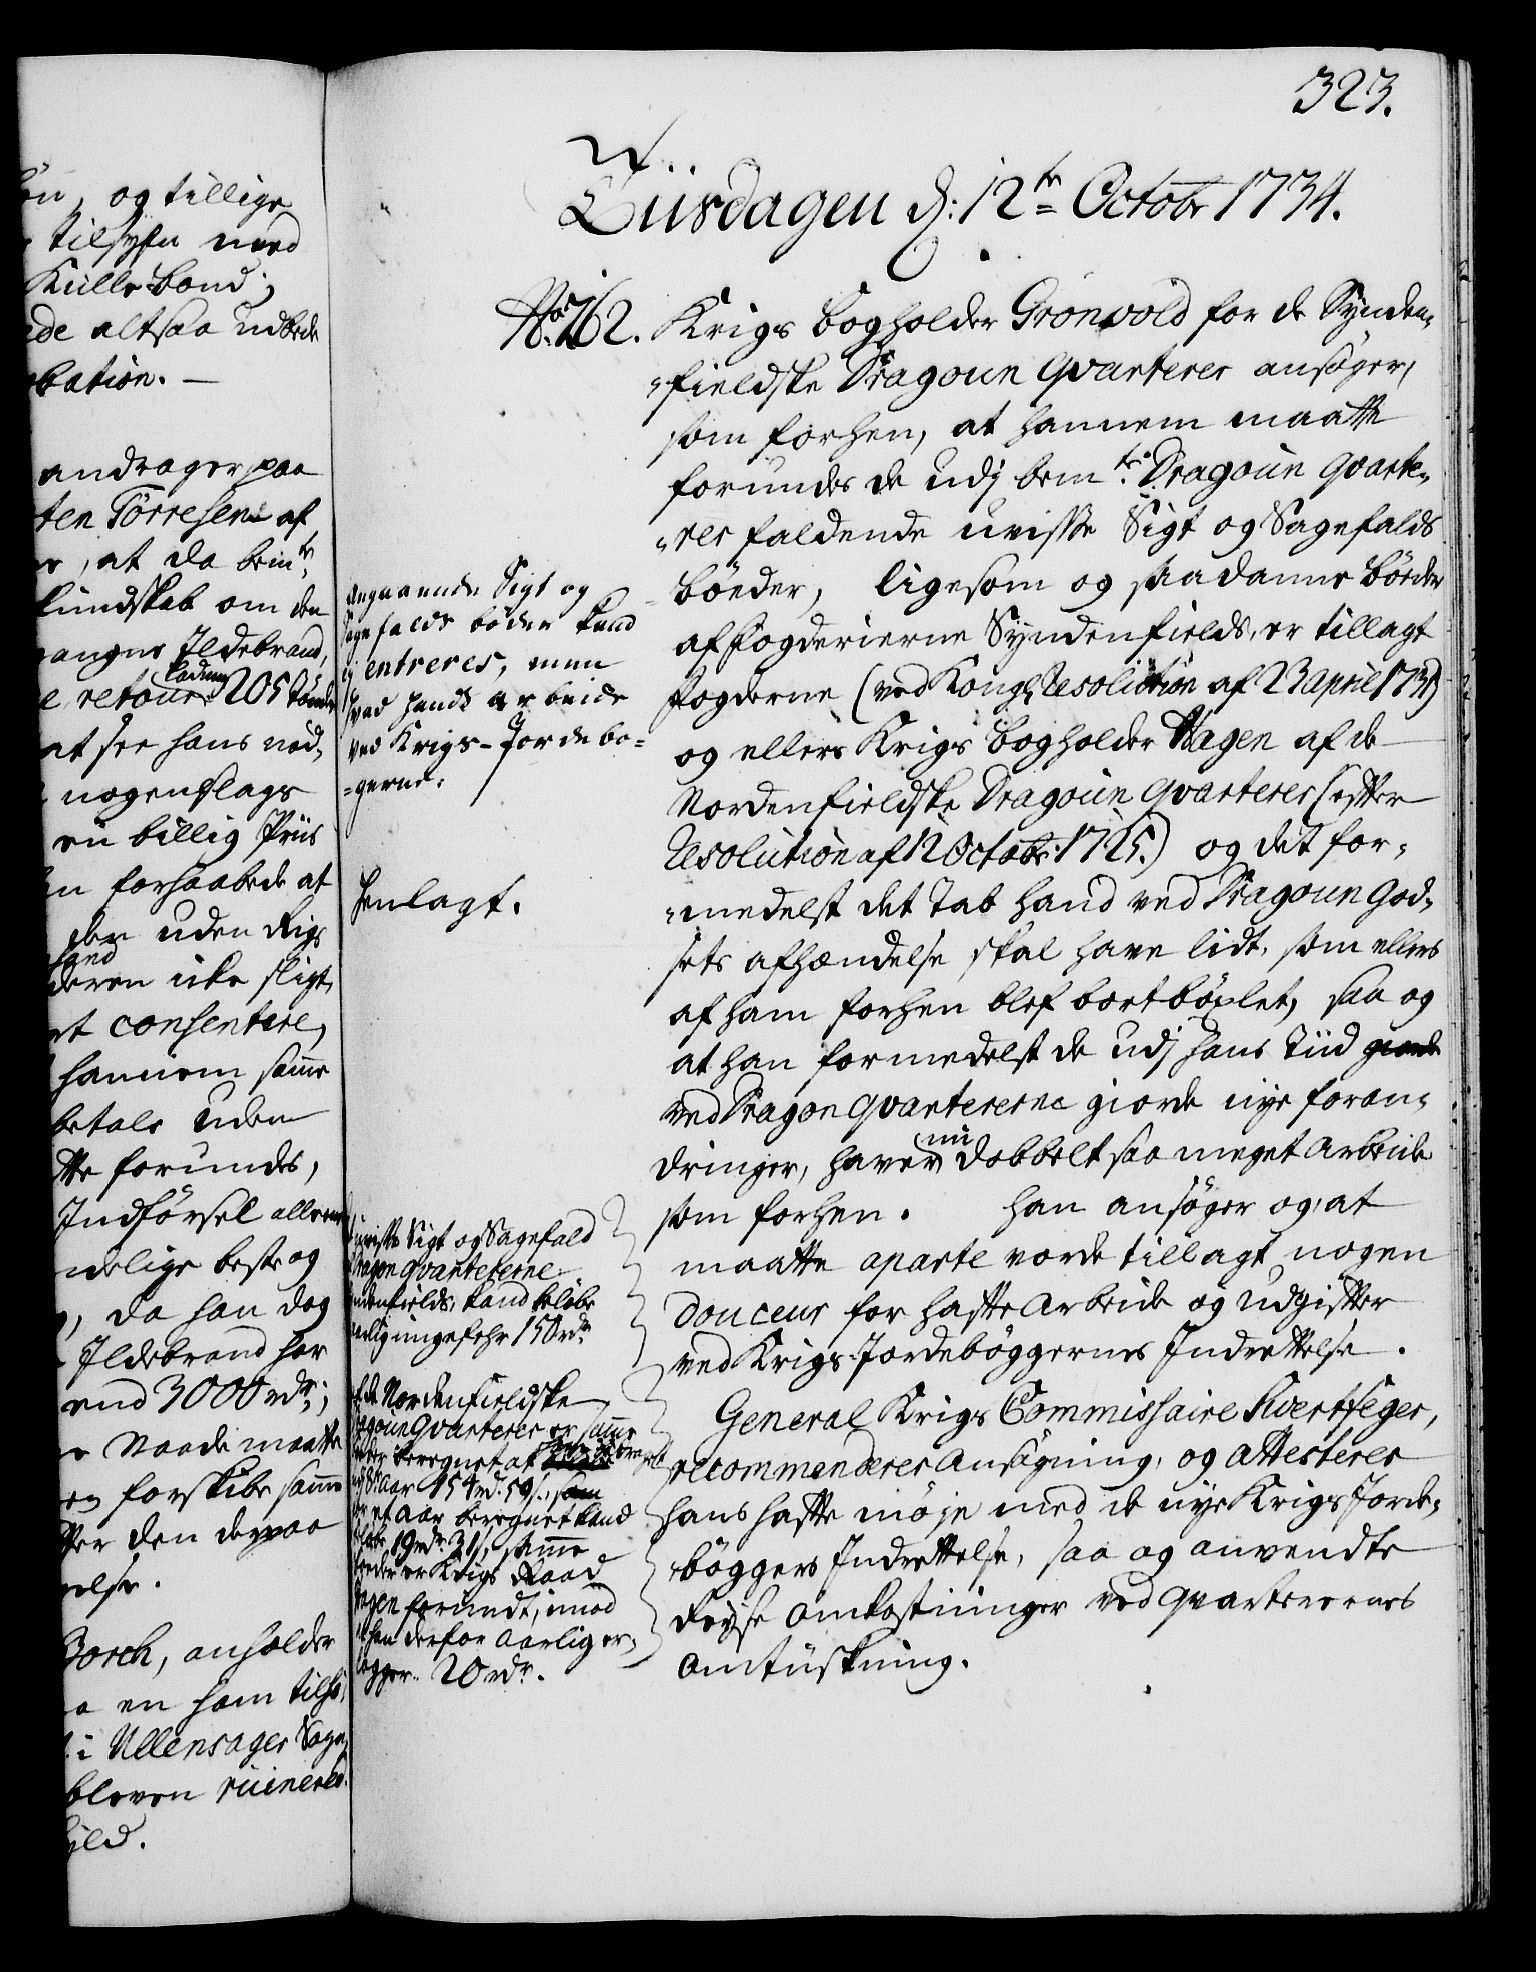 323.
Tiisdagen d: 12te Octobr 1734.
No. 762.
Krigs bogholder Grønvold for de Synden„
„fieldske Dragoun Qvarterer ansøger,
som forhen, at hannem maatte
forundes de udj bemte. Dragoun Qvarte„
„rer faldende uvisse Sigt og Sagefalds
bøeder, ligesom og saadanne bøeder
af fogderierne Syndenfields, er tillagt
fogderne (ved Kongl. Resolution af 23 april 1731)
og ellers Krigs bogholder Hagen af de
Nordenfieldske Dragoun Qvarterer (efter
Resolution af 12 Octobr: 1725.) og det for„
„medelst det Tab hand ved Dragoun God„
sets afhændelse skal have lidt, som ellers
af ham forhen blef bortbøxlet, saa og
at han formedelst de udj hans Tiid giorde
ved Dragon Qvartererne giorde nye foran„
dringer, haver nu dobbelt saa meget arbeide
som forhen. han ansøger og, at
maatte aparte vorde tillagt nogen
douceur for hafte arbeide og udgifter
ved Krigs-Jordebøggernes Indrettelse.
General Krigs Commissaire Svertfeger,
recommenderer ansøgning, og attesterer
hans hafte møje med de nye Krigs Jorde„
bøggers Indrettelse, saa og anvendte
Reyse omkostninger ved qvarterernes
omtuskning.
angaaende Sigt og
Sagefalds bøder kand
ej entreres, men
hvad hands arbeide
ved Krigs-Jordebø=
=gerne:
henlagt.
uvisse Sigt og Sagefald
Dragon Qvartererne
Syndenfields, kand beløbe
aarlig ungefehr 150 rdr
af de Nordenfieldske
Dragoun Qvarterer er samme
beregnet at
8te. Aar 154 rd. 59 s., som
et Aar beregnet kand
19 rdr. 31 s, samme
er Krigs Raad
Hagen forundt, imod
han derfor aarlig er„
lægger 20 rdr.
og tillige
tilsyn med
Kulle-bond,
altsaa udbede
bation. —
andrager paa
ten Torresen af
, at da bemte,
kundskab om den
Ildebrand,
retour ladning 205 Tønder
at see hans nød„
nogenslags
en billig Priis
forhaabede at
der uden Rigs
deren icke sligt,
consentere,
hannem samme
betale uden
forundes,
Indførsel
beste og
, da han dog
Ildebrand har
end 3000 rdr;
Naade maatte
forskibe samme
den derpaa
else.
Borch, anholder
en ham tilhø„
i Ullensager Sogn,
bleven ruineret